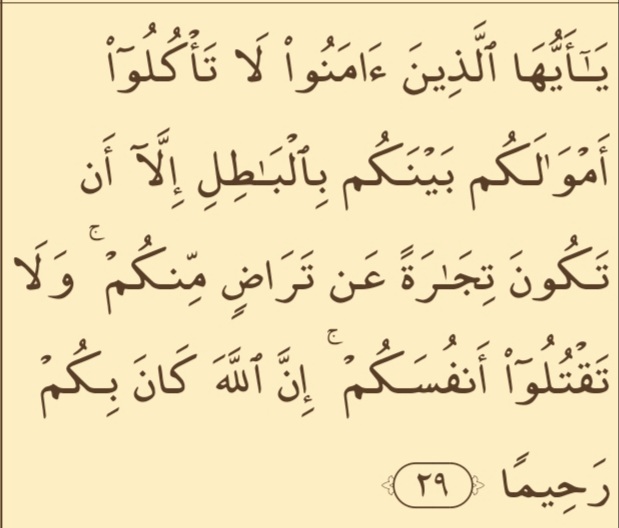 يَـٰٓأَيُّهَا ٱلَّذِينَ ءَامَنُوا۟ لَا تَأْكُلُوٓا۟
أَمْوَٰلَكُم بَيْنَكُم بِٱلْبَـٰطِلِ إِلَّآ أَن
تَكُونَ تِجَـٰرَةً عَن تَرَاضٍ مِّنكُمْ ۚ وَلَا
تَقْتُلُوٓا۟ أَنفُسَكُمْ ۚ إِنَّ ٱللَّهَ كَانَ بِكُمْ
رَحِيمًا ٢٩